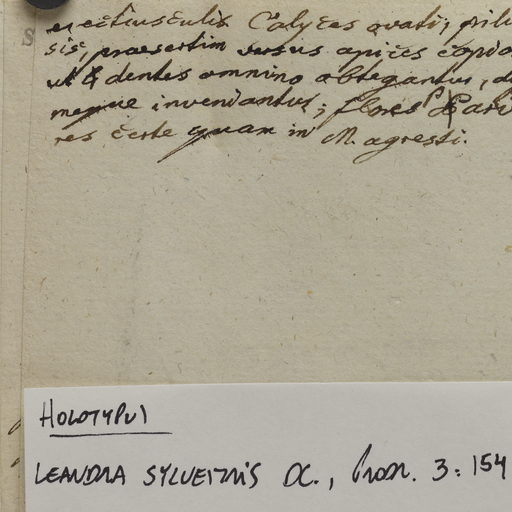 erectiusculis Calyces ovati; pilis
sis, praesertim versus apices copio
ut & dentes omnino obtegantur, d
meque inveniantur; flores pari
res certe quam in M. agresti.
S
HOLOTYPUS
LEANDRA SYLVESTRIS DC., Prodr. 3: 154